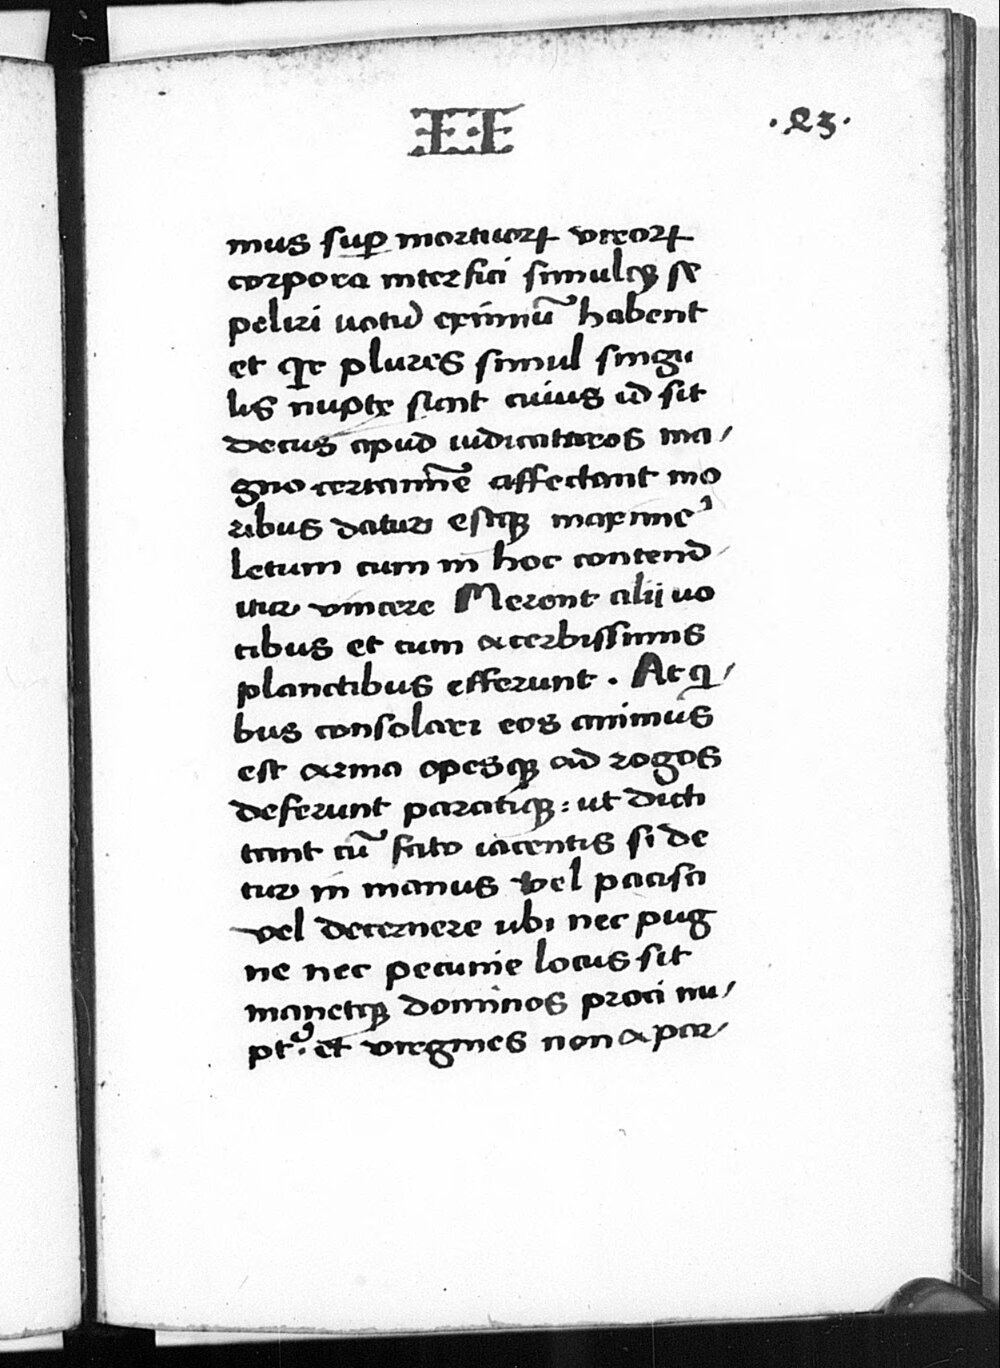 II
.23.
mus sup mortuorꝝ virorꝝ
corpora interfici simulqꝫ se
peliri uotuꝫ eximiū habent
et quꝫ plures simul singu
lis nupte sunt cuius id sit
decus apud iudicaturos ma/
gno certamīe affectant mo
ribus datur estqꝫ maxime
letum cum in hoc contend/
itur vincere Merent alij uo
cibus et cum acerbissimis
planctibus efferunt . At qi/
bus consolari eos animus
est arma opesqꝫ ad rogos
deferunt paratiqꝫ : ut dicti
tant cū fato iacentis si de
tur in manus vel pacisci
vel decernere ubi nec pug
ne nec pecunie locus sit
manetqꝫ dominos proci nu/
ptꝰ. et virgines non a par/